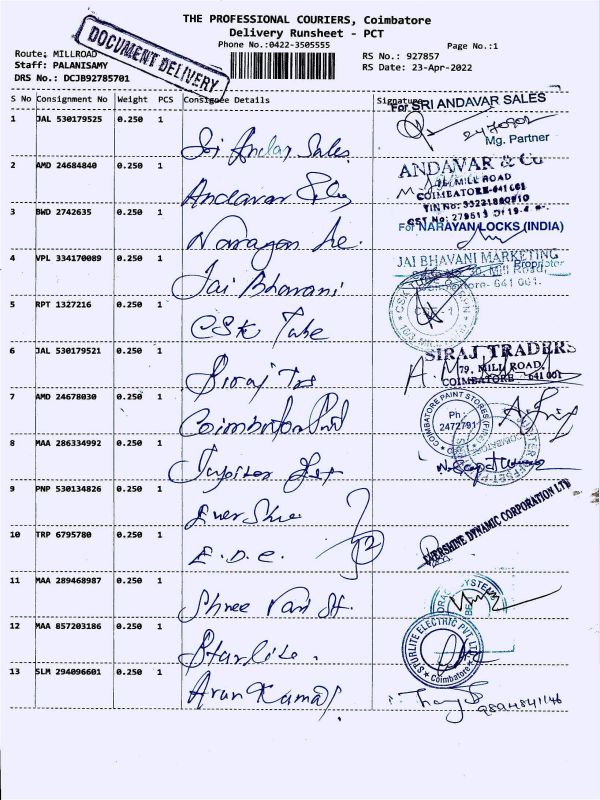 THE PROFESSIONAL COURIERS, Coimbatore
Delivery Runsheet - PCT
Phone No.:0422-3505555
Page No.:1
DOCUMENT DELIVERY
Route: MILLROAD
Staff: PALANISAMY
DRS No.: DCJB92785701
RS No.: 927857
RS Date: 23-Apr-2022
S No Consignment No Weight PCS Consignee Details Signature
For SRI ANDAVAR SALES
1 JAL 530179525 0.250 1 Sri Andavar Sales
Mg. Partner
2 AMD 24684840 0.250 1 Andavar
ANDAVAR & Co
76, MILL ROAD
COIMBATORE-641 001
3 BWD 2742635 0.250 1
For NARAYAN LOCKS (INDIA)
4 VPL 334170089 0.250 1 Jai Bhavani
JAI BHAVANI MARKETING
Proprietor
5 RPT 1327216 0.250 1 CSK Tube
6 JAL 530179521 0.250 1 Siraj Trs
SIRAJ TRADERS
79, MILL ROAD,
COIMBATORE - 641 001
7 AMD 24678030 0.250 1 Coimbatore
COIMBATORE PAINT STORES
Ph :
2472791
8 MAA 286334992 0.250 1 Jupiter
9 PNP 530134826 0.250 1 Ever Shine
10 TRP 6795780 0.250 1 E.D.C.
EVERSHINE DYNAMIC CORPORATION LTD
11 MAA 289468987 0.250 1 Shree
12 MAA 857203186 0.250 1 Starlite.
SURLITE ELECTRIC PVT LTD
Coimbatore
13 SLM 294096601 0.250 1 Arun Kumar
9894841146